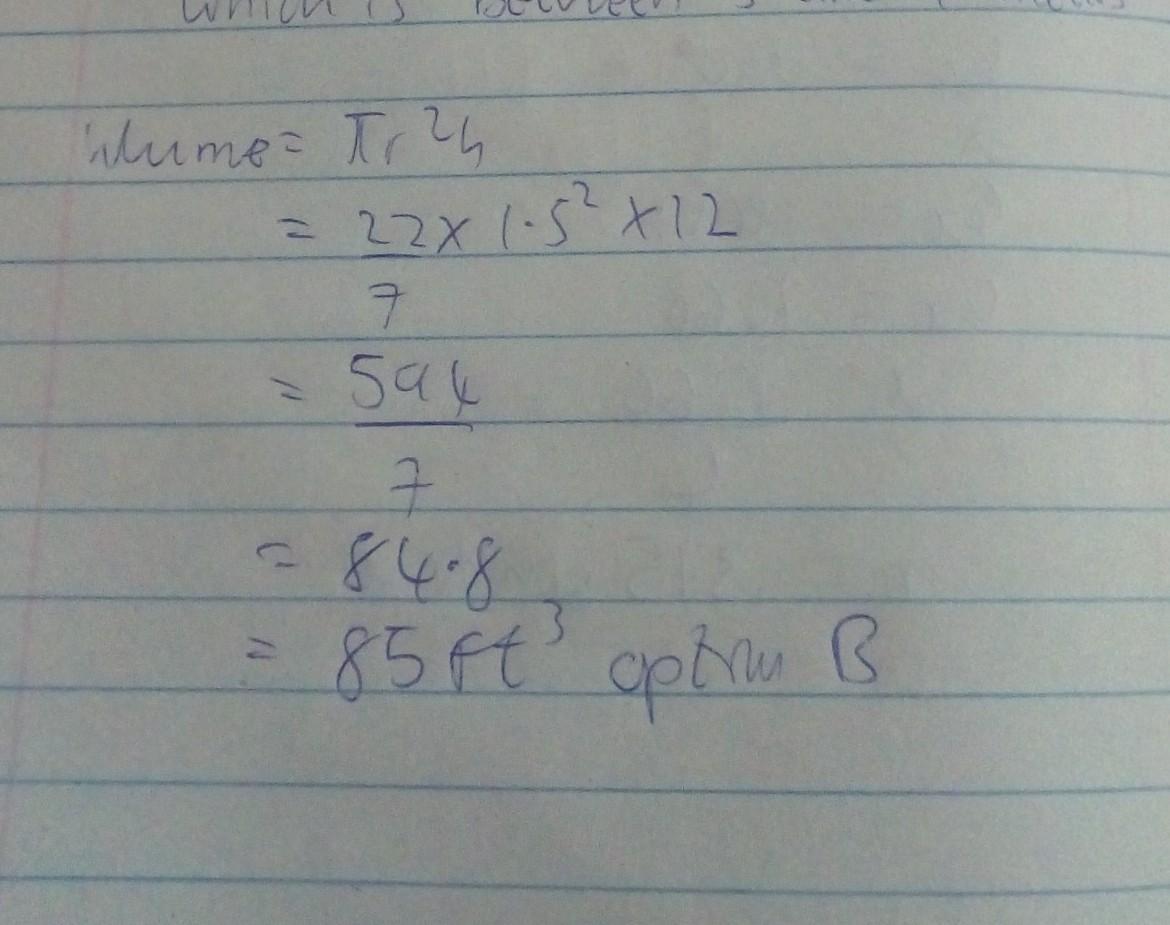 which is between
Volume = πr²h
= 22 × 1.5² × 12
7
= 594
7
= 84.8
= 85ft³ option B